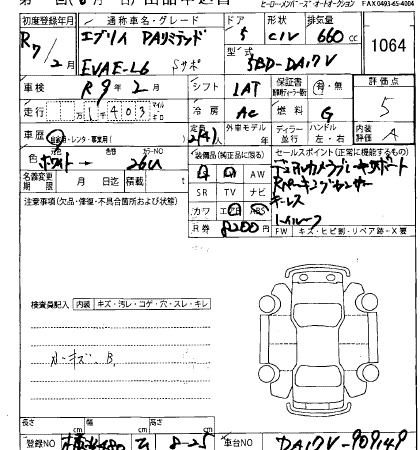 ヒーロー・メンバーズ・オートオークション FAX 0493-65-4004
初度登録年月 通称車名・グレード ドア 形状 排気量
R7年/2月 エブリイ PAリミテッド 5 CIV 660cc 1064
EVAE-L6 Sサポ 型式 5BD-DA17V
車検 R9年2月 シフト 1AT 保証書 有・無 評価点
走行 403 マイル キロ 冷房 AC 燃料 G 5
車歴 自家用・レンタ・事業用 定員 2(4)人 外車モデル 年 ディラー 並行 ハンドル 左・右 内装評価 A
色 元色 ホワイト 色替 カラーNO 26U 装備品(純正品に限る) セールスポイント(正常に機能するもの)
名義変更期限 月 日迄 積載 t AW デュアルカメラブレーキサポート
注意事項(欠品・修復・不具合箇所および状況) SR TV ナビ Rパーキングセンサー
カワ エアB ABS キーレス
R券 8200円
FW キズ・ヒビ割・リペア跡・X要
検査員記入 内装 キズ・汚レ・コゲ・穴・スレ・キレ
長さ cm 幅 cm 高さ cm
登録NO 8-25 車台NO DA17V-909149